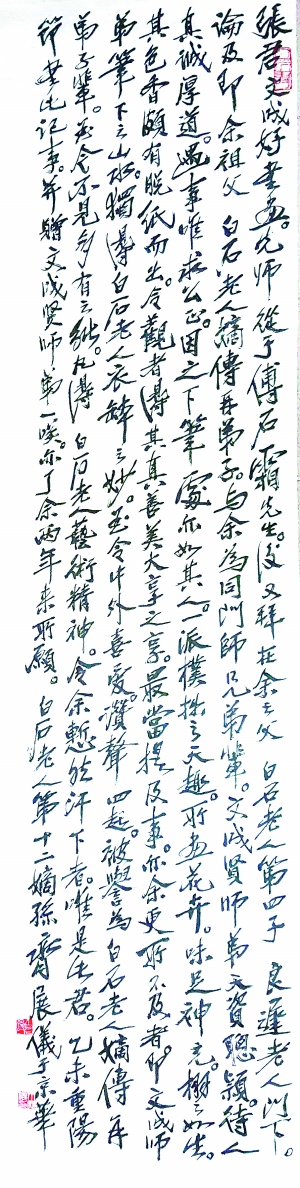 張君文成好書畫。先師從于傅石霜先生。後又拜在余之父 白石老人第四子 良遲老人門下。
論及即余祖父 白石老人嫡傳再弟子。與余為同門師兄弟輩。文成賢師弟天資聰穎。待人
真誠厚道。遇事唯求公正。因之下筆處亦如其人。一派樸拙之天趣。所畫花卉。味足神充。栩栩如生。
其色香頗有脱紙而出。令觀者得其真善美大享之享。最當提及事。亦余更所不及者。即文成師
弟筆下之山水。獨得白石老人衣缽之妙。至令中外喜愛。讚聲四起。被譽為白石老人嫡傳再
弟子輩。至今不見多有之。能凡得 白石老人藝術精神。令余慙然汗下者。唯是張君。乙未重陽
節草此記事。并贈文成賢師弟一嗟。亦了余兩年來所願。 白石老人第十二嫡孫齊展儀于京華